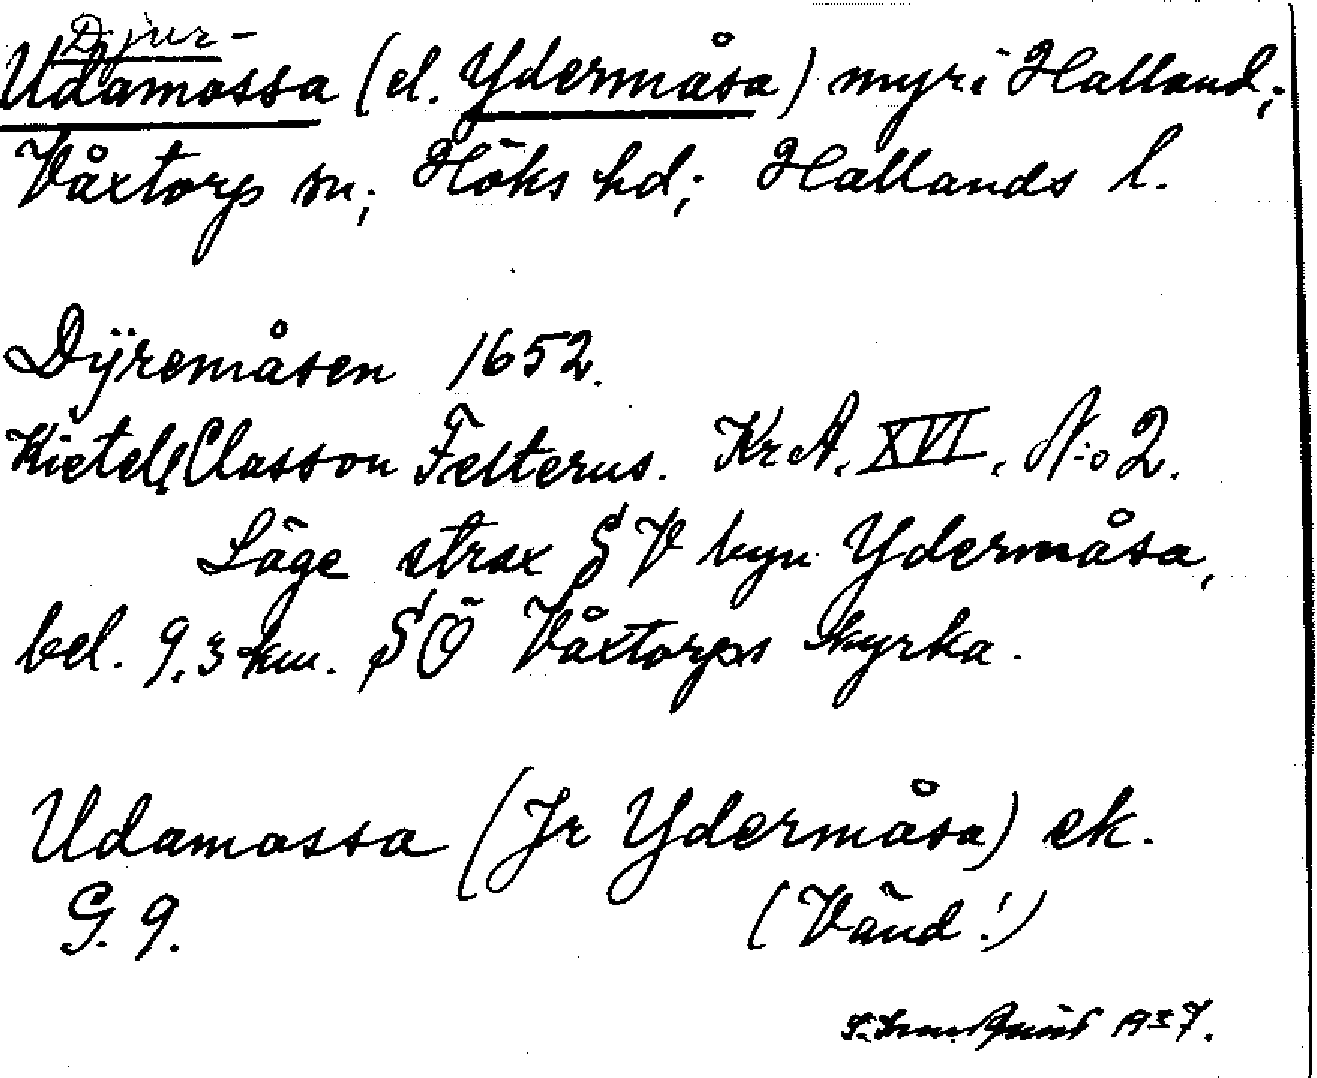 Djur-
Udamossa (el. Ydermåsa) myr i Halland;
Våxtorp sn; Höks hd; Hallands l.
Dÿremåsen 1652.
Kietell Classon Felterus. KrA. XVI. N:o 2.
Läge strax SV byn Ydermåsa,
bel. 9,3 km. SÖ Våxtorps kyrka.
Udamossa (Jr Ydermåsa) ek.
G. 9. (Vänd!)
1937.